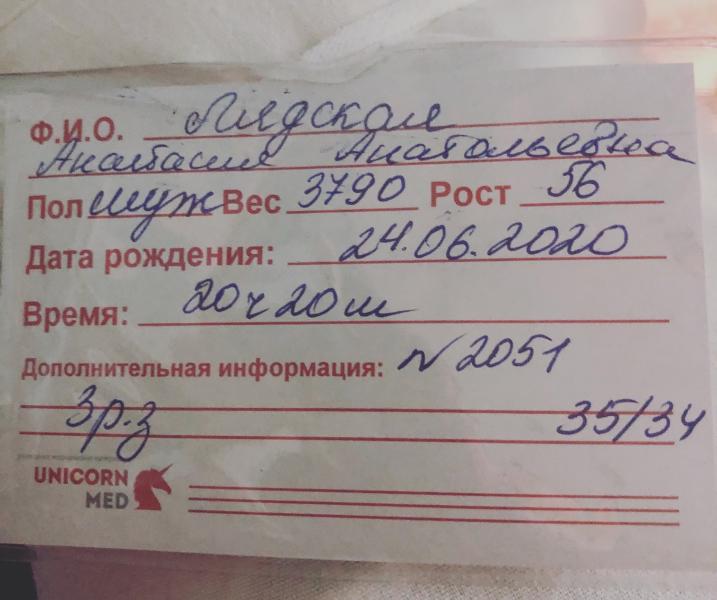 Ф.И.О. Лядская
Анастасия Анатольевна
Пол муж Вес 3790 Рост 56
Дата рождения: 24.06.2020
Время: 20ч20м
Дополнительная информация: N 2051
3р.з 35/34
UNICORN
MED